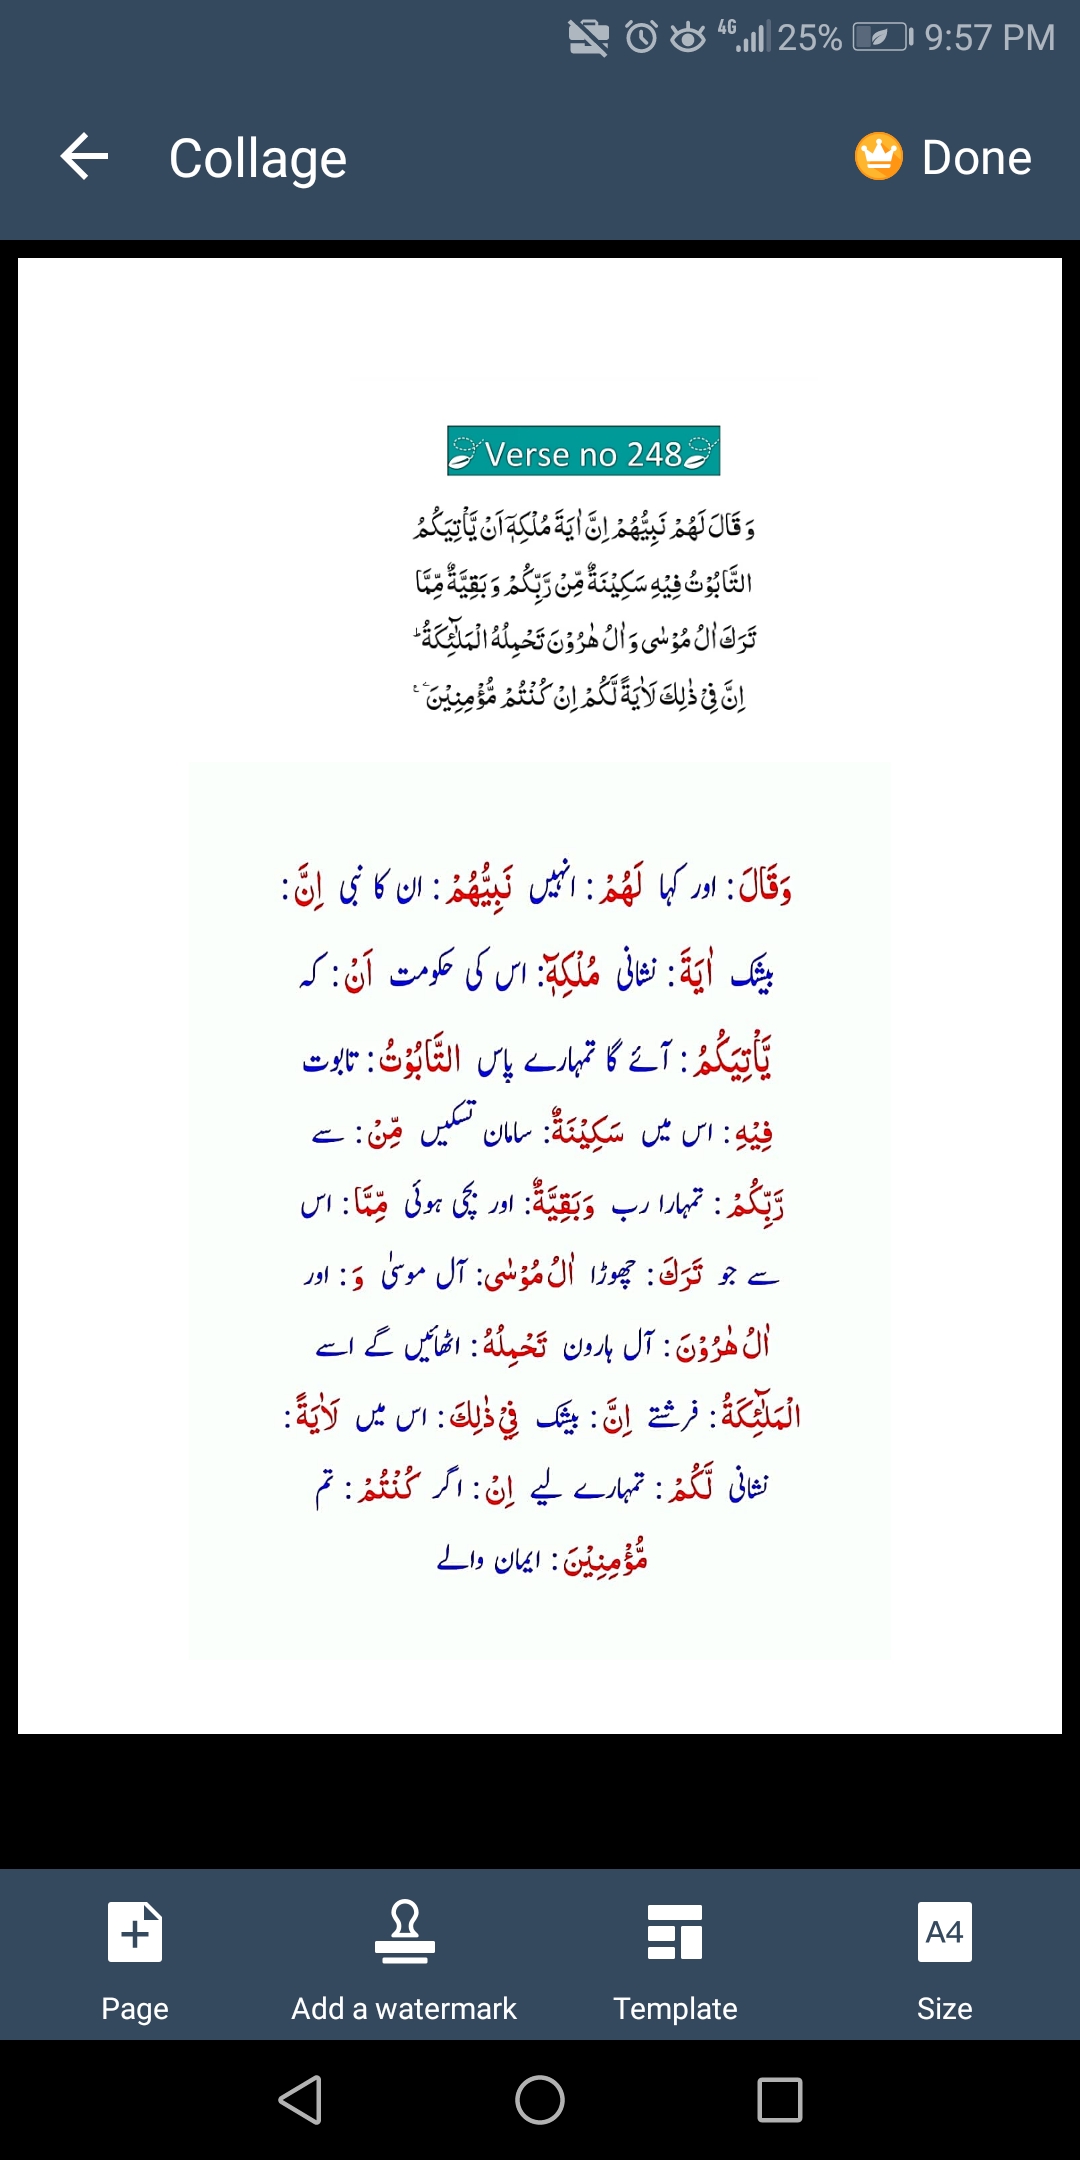 4G 25% 9:57 PM
Collage Done
Verse no 248
وَ قَالَ لَهُمْ نَبِيُّهُمْ اِنَّ اٰيَةَ مُلْكِهٖۤ اَنْ يَّاْتِيَكُمُ
التَّابُوْتُ فِيْهِ سَكِيْنَةٌ مِّنْ رَّبِّكُمْ وَ بَقِيَّةٌ مِّمَّا
تَرَكَ اٰلُ مُوْسٰى وَ اٰلُ هٰرُوْنَ تَحْمِلُهُ الْمَلٰٓئِكَةُ ؕ
اِنَّ فِيْ ذٰلِكَ لَاٰيَةً لَّكُمْ اِنْ كُنْتُمْ مُّؤْمِنِيْنَ ۠ ع
وَقَالَ: اور کہا لَهُمْ: انہیں نَبِيُّهُمْ: ان کا نبی اِنَّ:
بیشک اٰيَةَ: نشانی مُلْكِهٖۤ: اس کی حکومت اَنْ: کہ
يَّاْتِيَكُمُ: آئے گا تمہارے پاس التَّابُوْتُ: تابوت
فِيْهِ: اس میں سَكِيْنَةٌ: سامان تسکیں مِّنْ: سے
رَّبِّكُمْ: تمہارا رب وَبَقِيَّةٌ: اور بچی ہوئی مِّمَّا: اس
سے جو تَرَكَ: چھوڑا اٰلُ مُوْسٰى: آل موسیٰ وَ: اور
اٰلُ هٰرُوْنَ: آل ہارون تَحْمِلُهُ: اٹھائیں گے اسے
الْمَلٰٓئِكَةُ: فرشتے اِنَّ: بیشک فِيْ ذٰلِكَ: اس میں لَاٰيَةً:
نشانی لَّكُمْ: تمہارے لیے اِنْ: اگر كُنْتُمْ: تم
مُّؤْمِنِيْنَ: ایمان والے
A4
Page Add a watermark Template Size